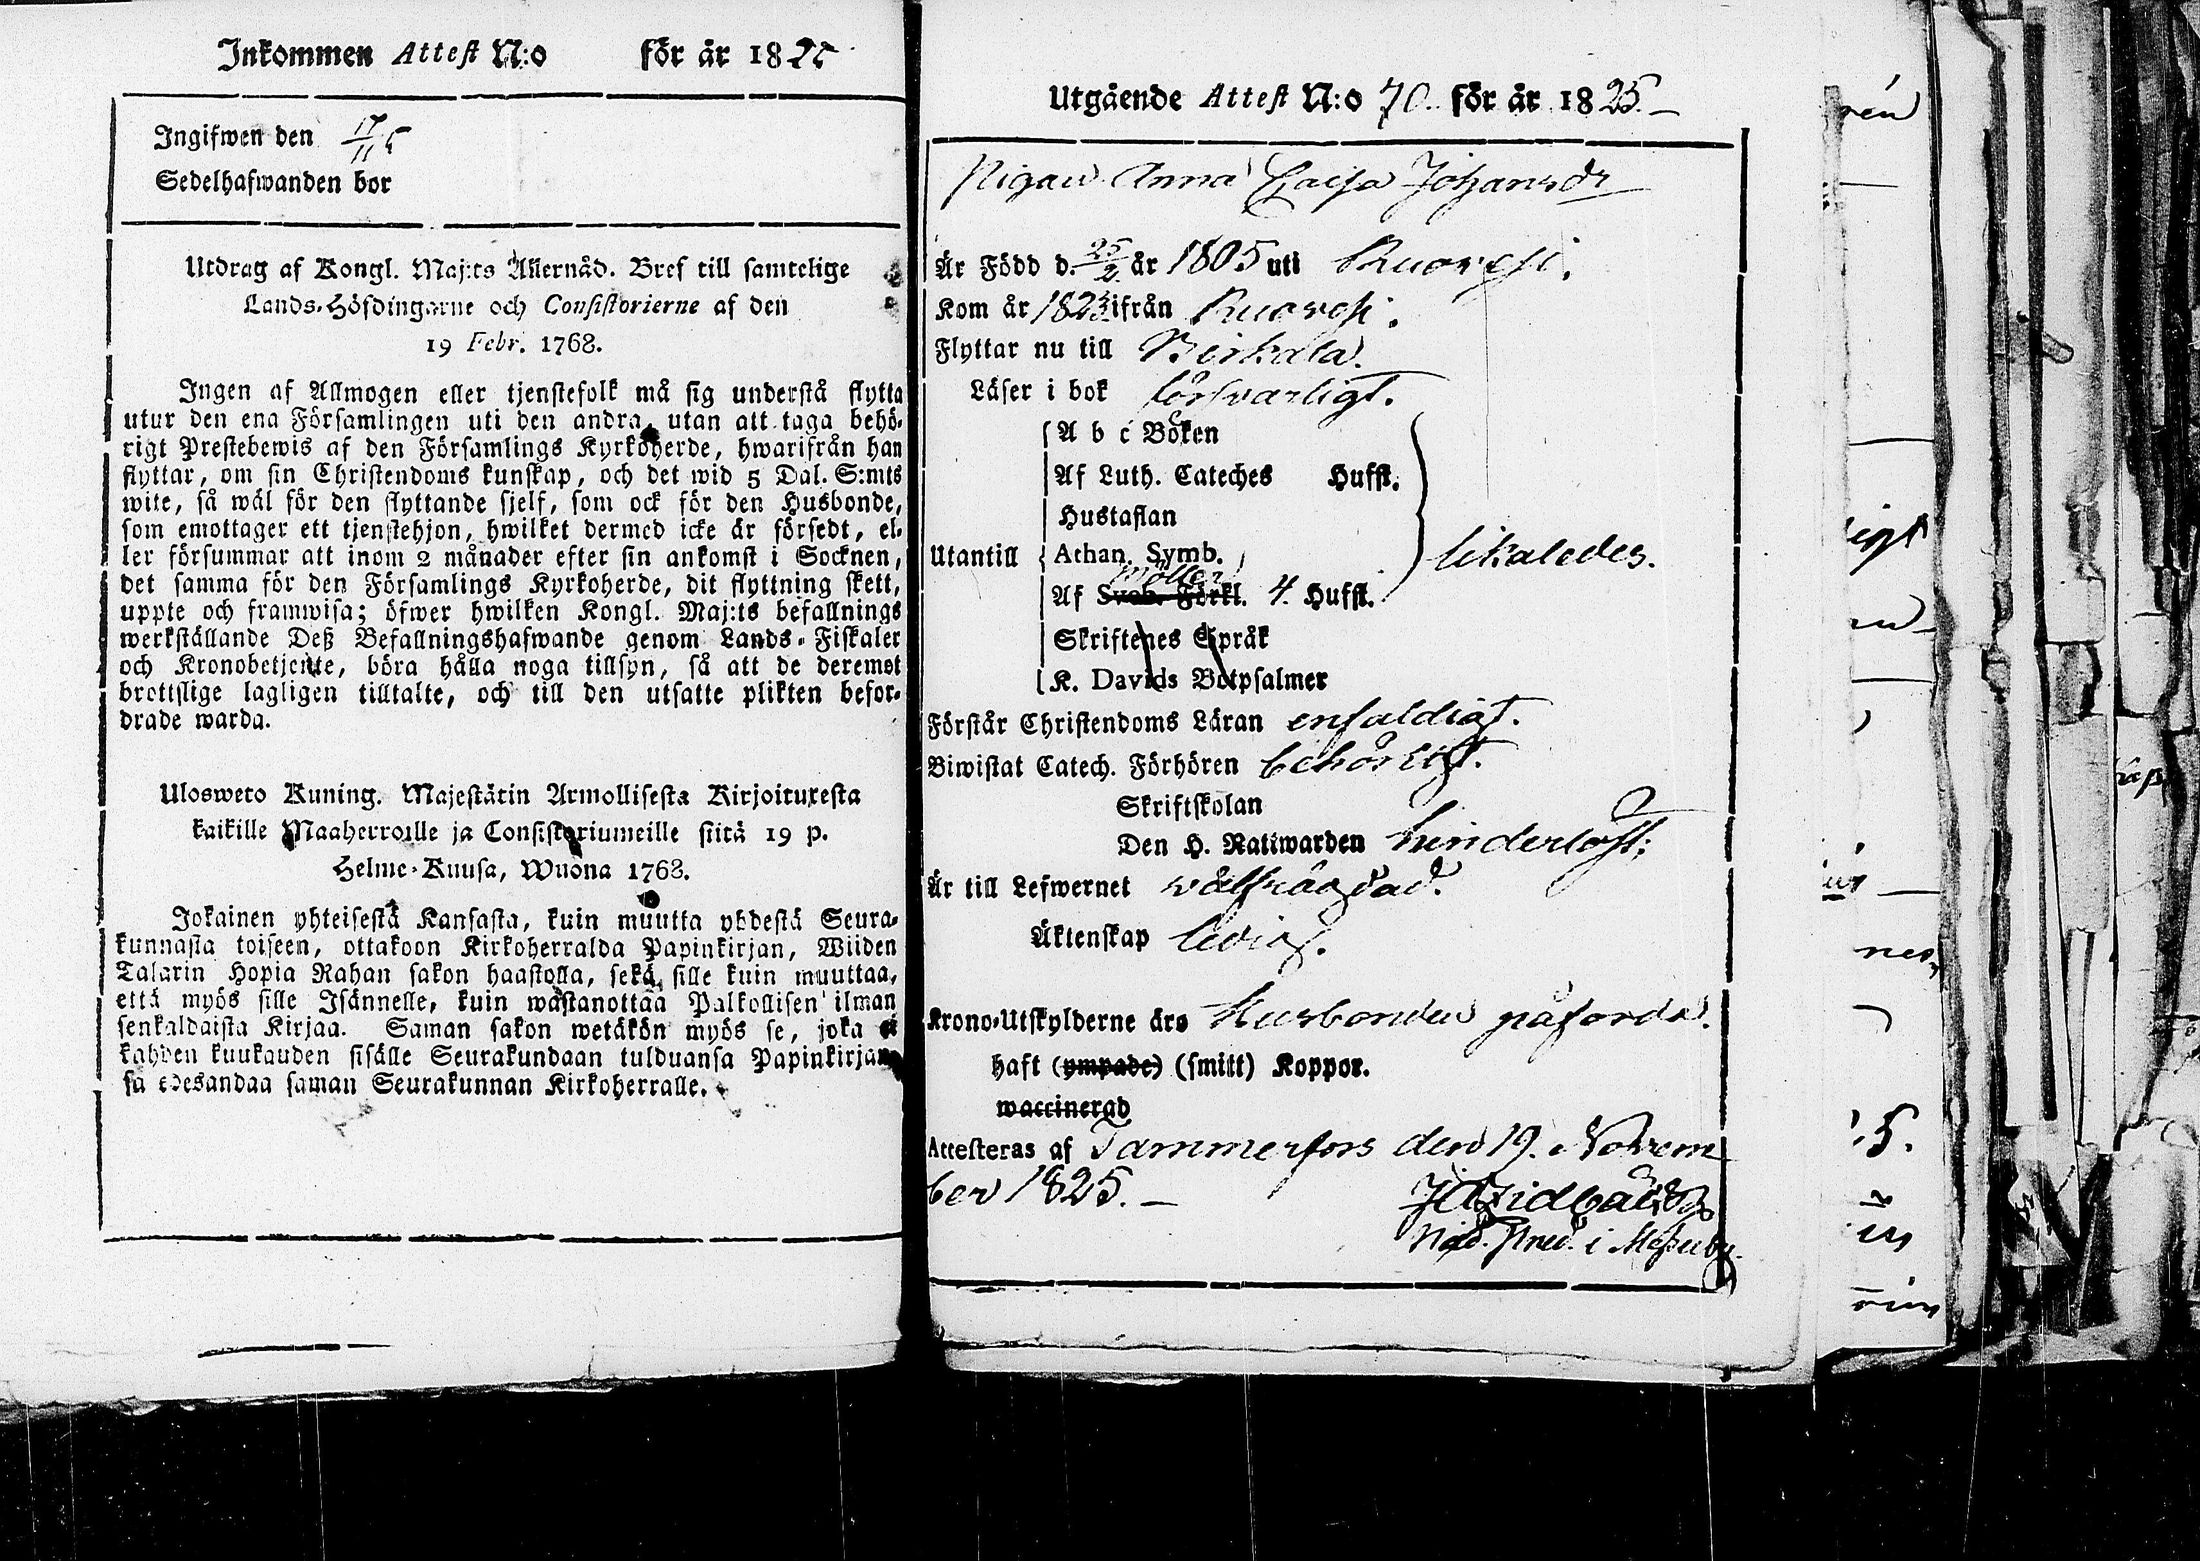 Inkommen Attest N:o för år 1825
Ingifwen den 17/11
Sedelhafwanden bor
Utdrag af Kongl. Maj:ts Allernåd. Bref till samtelige
Lands-Höfdingarne och Consistorierne af den
19 Febr. 1768.
Ingen af Allmogen eller tjenstefolk må sig understå flytta
utur den ena Församlingen uti den andra, utan att taga behö-
rigt Prestebewis af den Församlings Kyrkoherde, hwarifrån han
flyttar, om sin Christendoms kunskap, och det wid 5 Dal. S:mts
wite, så wäl för den flyttande sjelf, som ock för den Husbonde,
som emottager ett tjenstehjon, hwilket dermed icke är försedt, el-
ler försummar att inom 2 månader efter sin ankomst i Socknen,
det samma för den Församlings Kyrkoherde, dit flyttning skett,
uppte och framwisa; öfwer hwilken Kongl. Maj:ts befallnings
werkställande Deß Befallningshafwande genom Lands-Fiskaler
och Kronobetjente, böra hålla noga tillsyn, så att de deremot
brottslige lagligen tilltalte, och till den utsatte plikten befor-
drade warda.
Ulosweto Kuning. Majestätin Armollisesta Kirjoituxesta
kaikille Maaherroille ja Consistoriumeille siitä 19 p.
Helme-Kuusa, Wuona 1768.
Jokainen yhteisestä Kansasta, kuin muutta yhdestä Seura-
kunnasta toiseen, ottakoon Kirkoherralda Papinkirjan, Wiiden
Talarin Hopia Rahan sakon haastolla, sekä sille kuin muuttaa,
että myös sille Isännelle, kuin wastanottaa Palkollisen ilman
senkaldaista Kirjaa. Saman sakon wetäkön myös se, joka ei
kahden kuukauden sisälle Seurakundaan tulduansa Papinkirjan-
sa edesandaa saman Seurakunnan Kirkoherralle.
Utgående Attest N:o 70. för år 1825.
Pigan Anna Caisa Johansdr
Är Född d. 25/2 år 1805 uti Ruovesi.
Kom år 1823 ifrån Ruovesi.
Flyttar nu till Birkala.
Läser i bok försvarligt.
A b c Boken
Af Luth. Cateches Hufst.
Hustaflan
Utantill Athan. Symb. likaledes.
Möller
Af Sveb. Förkl. 4. Hufst.
Skriftenes Språk
K. Davids Botpsalmer
Förstår Christendoms Läran enfaldigt.
Biwistat Catech. Förhören behörigt.
Skriftskolan
Den H. Nattwarden hinderlöst;
Är till Lefwernet wälfrägdad.
Äktenskap ledig.
Krono-Utskylderne äro Husbonden påförda.
haft (ympade) (smitt) Koppor.
waccinerad
Attesteras af Tammerfors den 19. Novem
ber 1825.
i Messuby